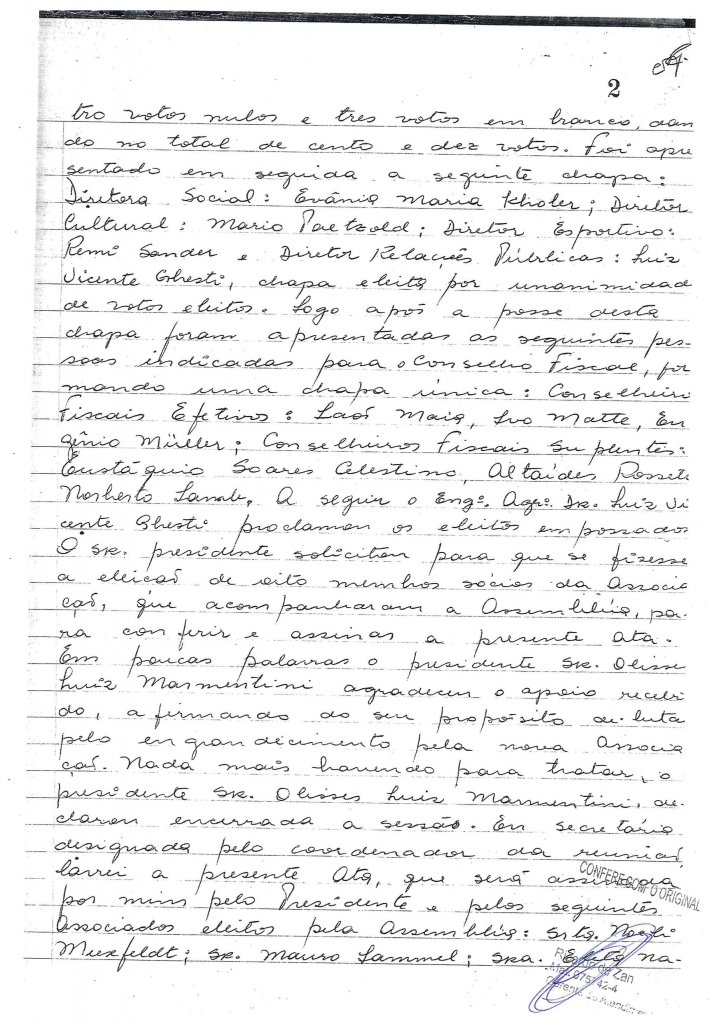 2
tro votos nulos e tres votos em branco, dan
do no total de cento e dez votos. Foi apre
sentado em seguida a seguinte chapa:
Diretora Social: Evânia Maria Kholer; Diretor
Cultural: Mario Paetzold; Diretor Esportivo:
Remi Sander e Diretor Relações Públicas: Luiz
Vicente Ghesti, chapa eleita por unanimidad
de votos eleitos. Logo após a posse desta
chapa foram apresentadas as seguintes pes-
soas indicadas para o Conselho Fiscal, for
mando uma chapa única: Conselheiro
Fiscais Efetivos: Laoí Maia, Ivo Matte, Eu
gênio Müeller; Conselheiros Fiscais Suplentes:
Eustáquio Soares Celestino, Altaídes Rosset
Norberto. A seguir o Engº. Agrº. Dr. Luiz Vi
cente Ghesti proclamou os eleitos empossados
O sr. presidente solicitou para que se fizesse
a eleição de oito membros sócios da Associa
ção, que acompanharam a Assembléia, pa-
ra conferir e assinar a presente Ata.
Em poucas palavras o presidente Sr. Olisse
Luiz Marmentini agradeceu o apoio recebi
do, afirmando do seu propósito de luta
pelo engrandecimento pela nova Associa
ção. Nada mais havendo para tratar, o
presidente Sr. Olisses Luiz Marmentini, de-
clarou encerrada a sessão. Eu secretária
designada pelo coordenador da reunião,
lavrei a presente Ata, que será assinada
CONFERE COM O ORIGINAL
por mim pelo Presidente e pelos seguintes
Associados eleitos pela Assembléia: Srta. Noeli
Muxfeldt; Sr. Mauro Lammel; Sra. Na-
de Zan